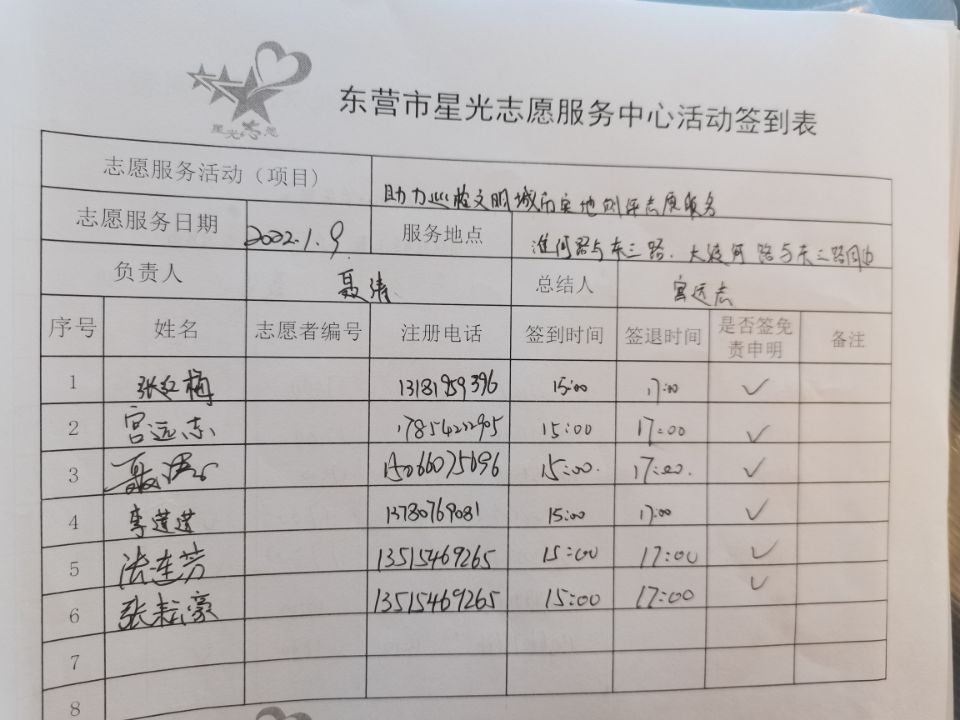 星光志愿
东营市星光志愿服务中心活动签到表
志愿服务活动（项目） 助力巡检文明城市实地测评志愿服务
志愿服务日期 2022.1.9. 服务地点 淮河路与东三路、大渡河路与东三路周边
负责人 聂涛 总结人 宫远志
序号 姓名 志愿者编号 注册电话 签到时间 签退时间 是否签免责申明 备注
1 张红梅 13181959396 15:00 17:00 ✓
2 宫远志 17854222905 15:00 17:00 ✓
3 聂涛 15066075696 15:00. 17:00. ✓
4 李莲莲 13780769081 15:00 17:00 ✓
5 法连芳 13515469265 15:00 17:00 ✓
6 张耘豪 13515469265 15:00 17:00 ✓
7
8